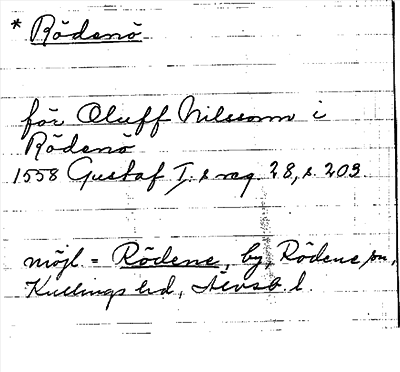 * Rödenö
för Oluff Nilssonn i
Rödenö
1558 Gustaf I:s reg. 28, s. 203.
möjl = Rödene, by, Rödene sn,
Kullings hd, Älvsb. l.